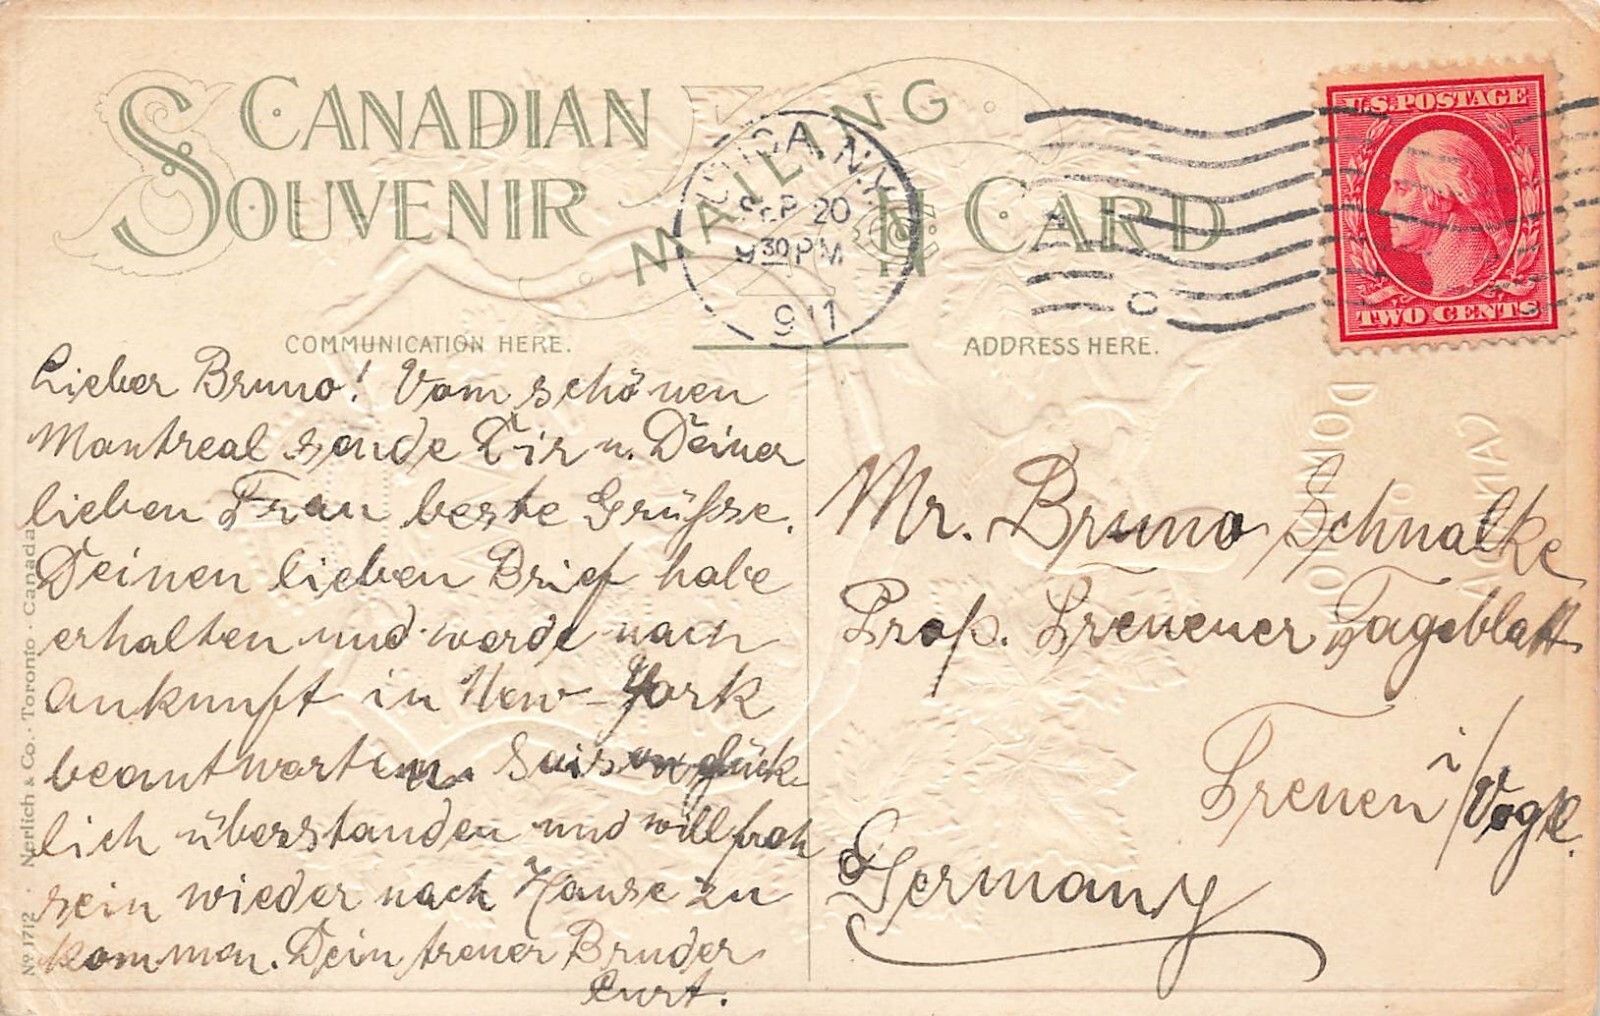 CANADIAN
SOUVENIR
MAILING
CARD
UTICA, N.Y.
SEP 20
9 30 PM
1911
U.S. POSTAGE
TWO CENTS
COMMUNICATION HERE.
ADDRESS HERE.
Lieber Bruno! Vom schönen
Montreal sende Dir u. Deiner
lieben Frau beste Grüsse.
Deinen lieben Brief habe
erhalten und werde nach
Ankunft in New-York
beantworten. Saison glück-
lich überstanden und will froh
sein wieder nach Hause zu
kommen. Dein treuer Bruder
Curt.
Mr. Bruno Schnalke
Prop. Treuener Tageblatt
Treuen i/Vogtl.
Germany
DOMINION
OF
CANADA
No 1712 · Nerlich & Co. · Toronto · Canada